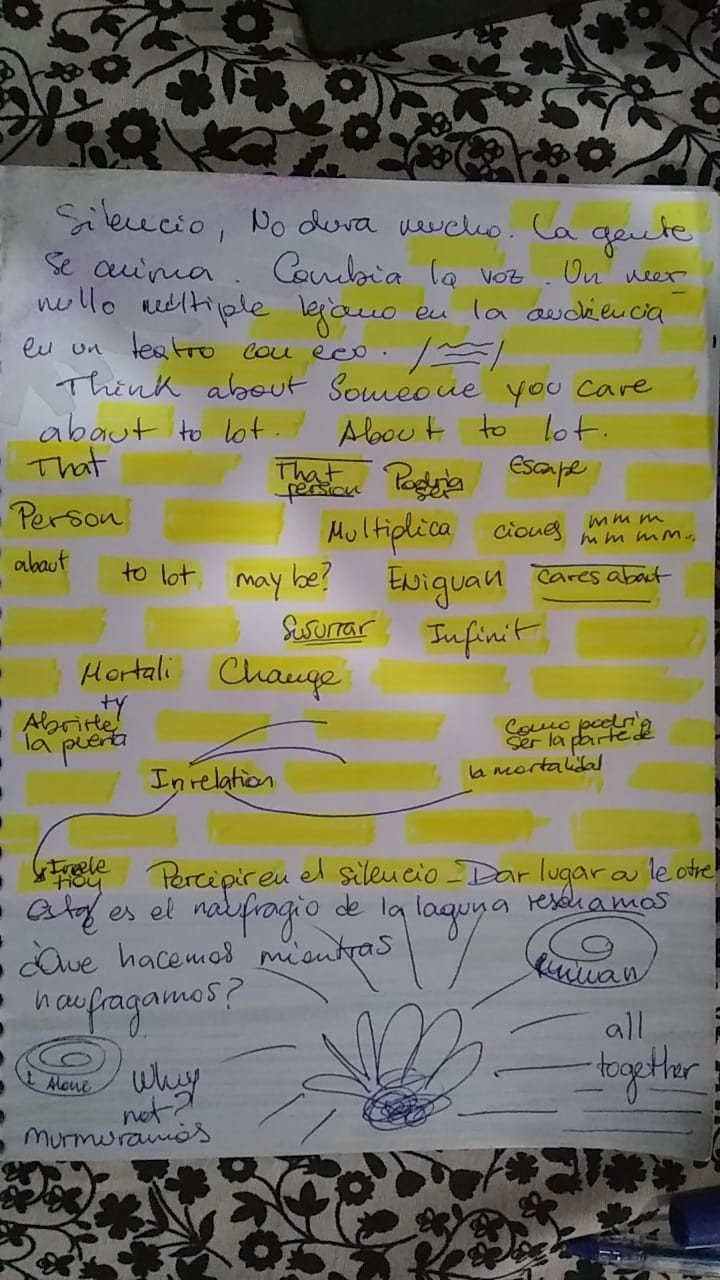 Silencio, No dura mucho. La gente
se anima. Cambia la voz. Un mur-
mullo múltiple lejano en la audiencia
en un teatro con eco.
Think about Someone you care
about to lot. About to lot.
That That person Podría ser Escape
Person Multiplica ciones mmm
mm mm..
about to lot may be? ENiguan Cares about
Susurrar Infinit
Mortali Change
ty
Abrirte Como podría
la puerta ser la parte de
In relation la mortalidad
Percipir en el silencio - Dar lugar a le otre
este es el naufragio de la laguna
¿Que hacemos mientras
naufragamos?
all
together
I Alone Why
not?
murmuramos